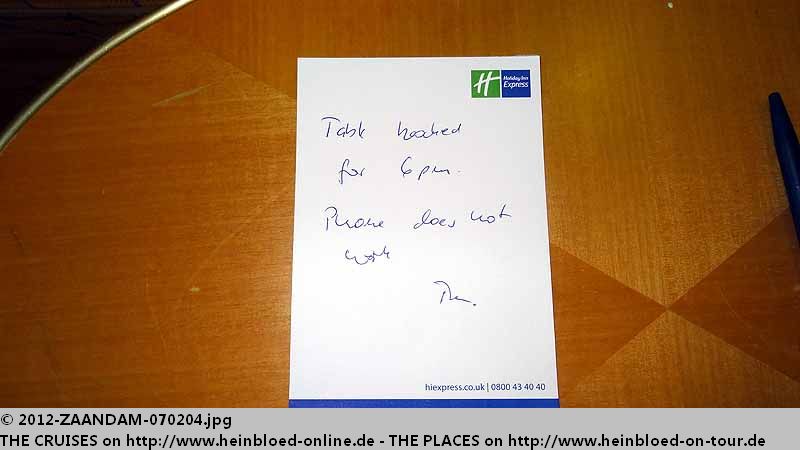 Holiday Inn
Express
Table booked
for 6 pm.
Phone does not
work
hiexpress.co.uk | 0800 43 40 40
© 2012-ZAANDAM-070204.jpg
THE CRUISES on http://www.heinbloed-online.de - THE PLACES on http://www.heinbloed-on-tour.de